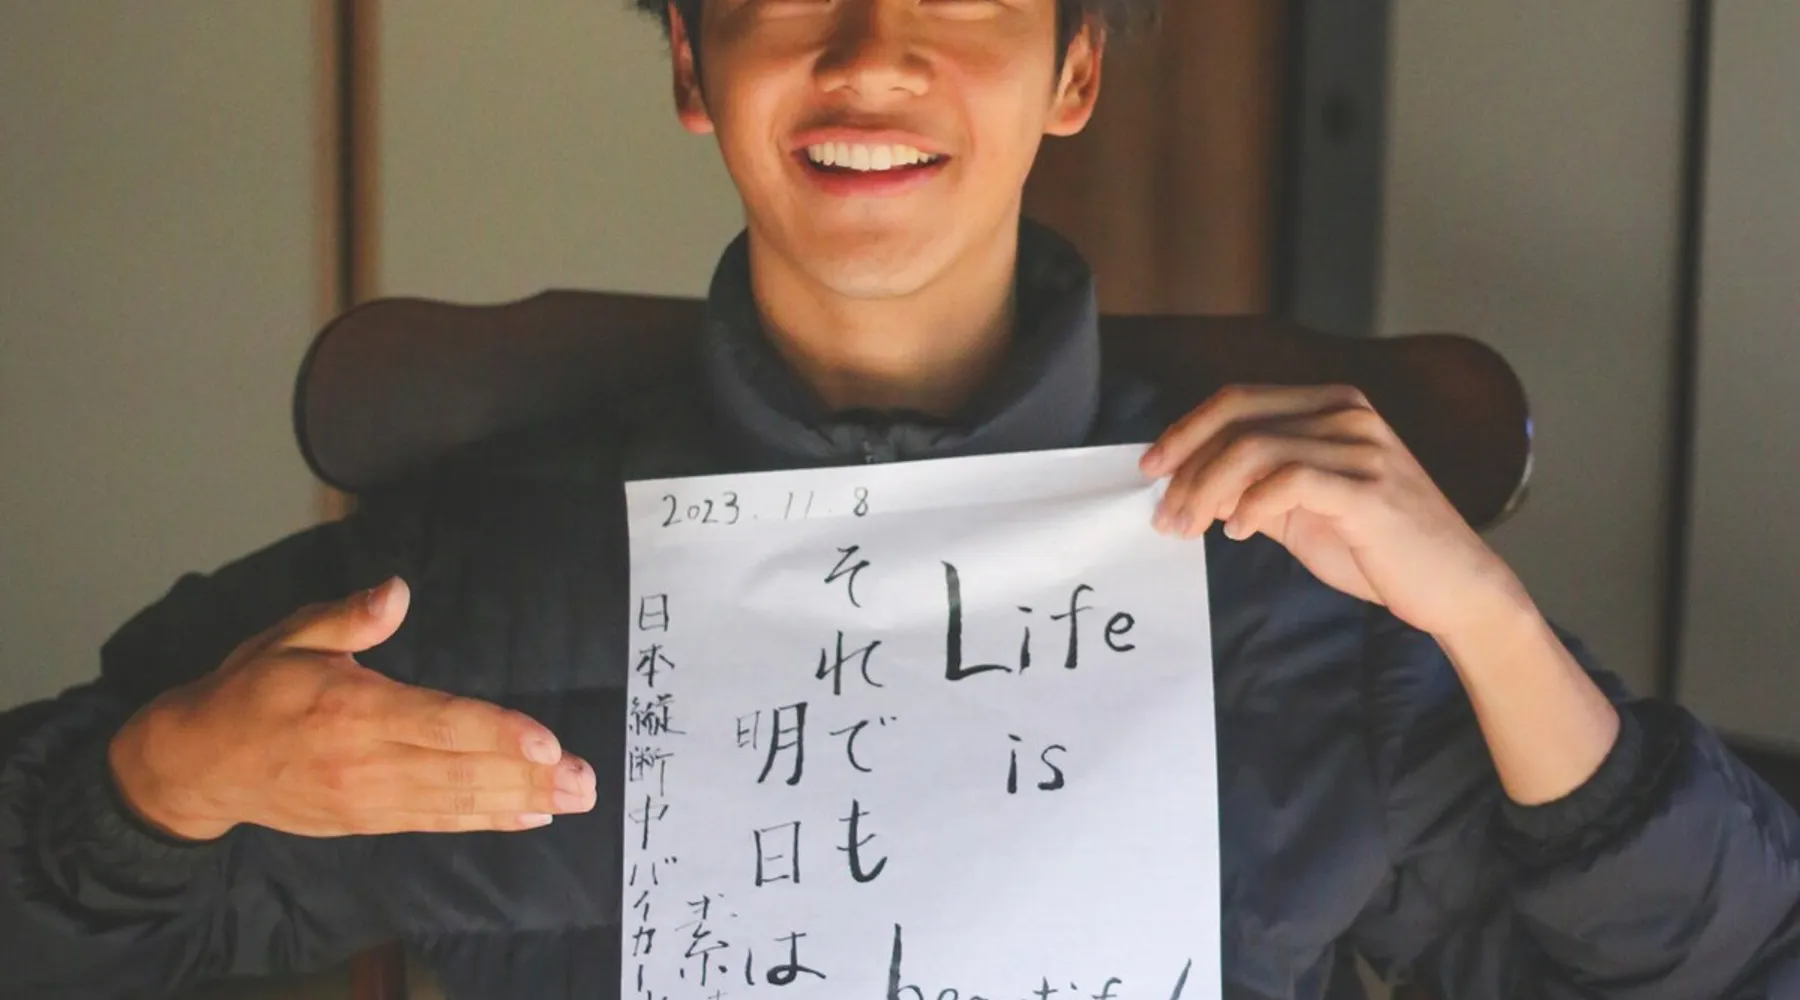 2023.11.8
Life
is
beautiful
それでも
明日は
素
日本縦断中バイカー